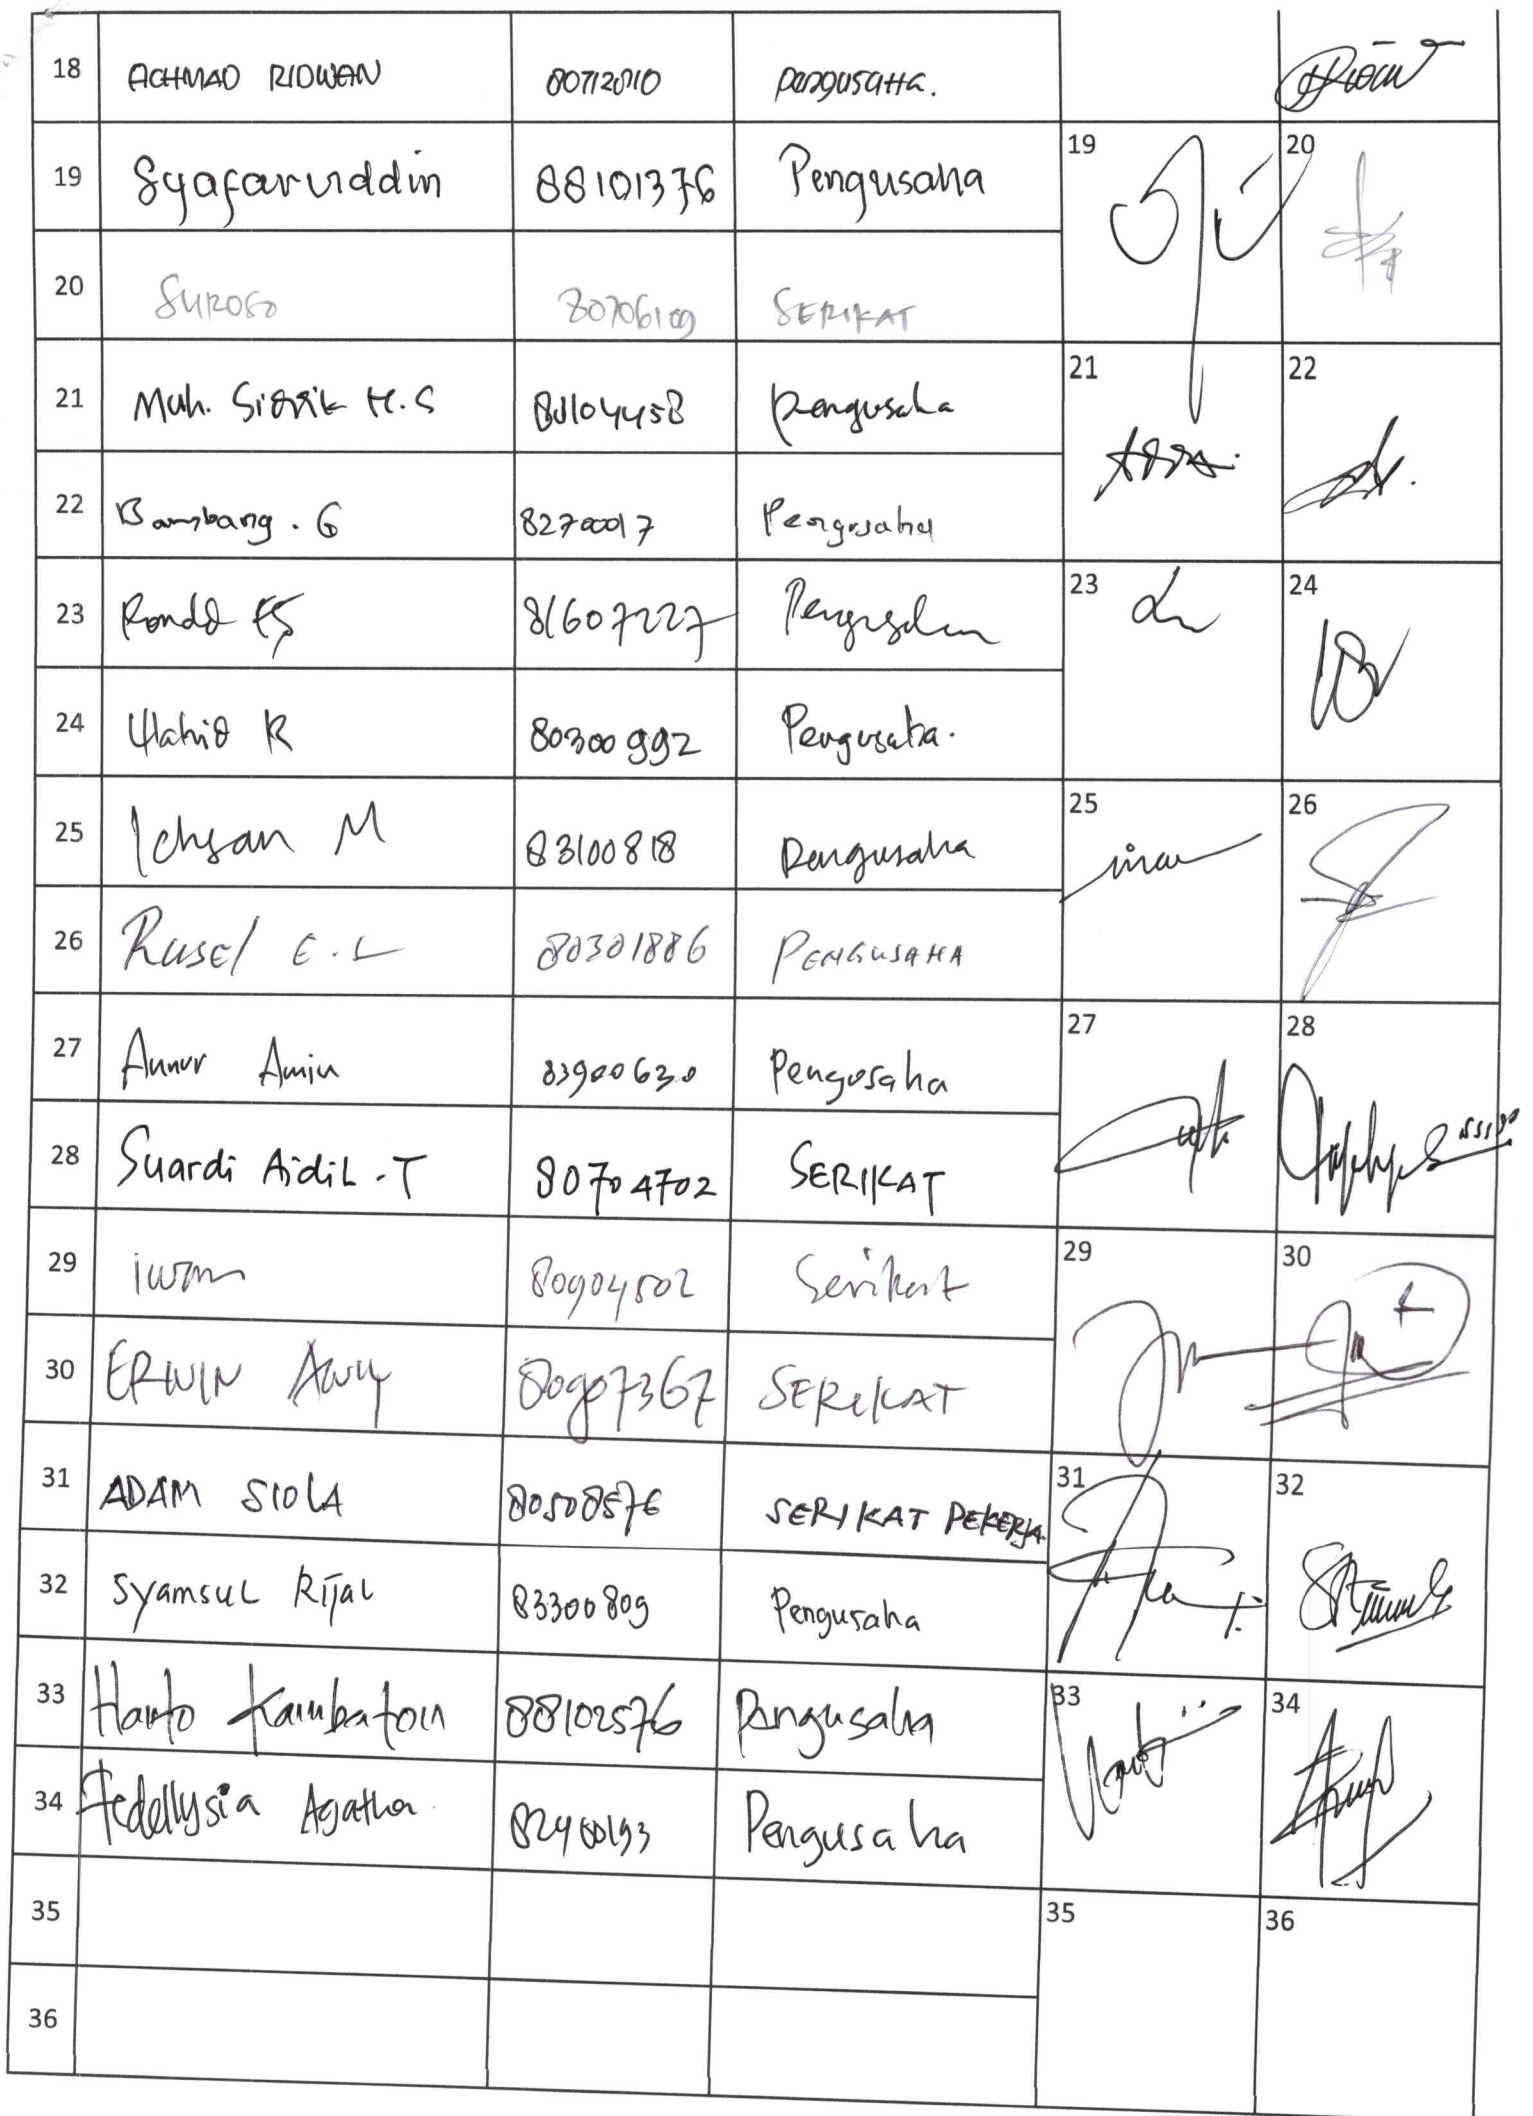 18 ACHMAD RIDWAN 80712010 pengusaha.
19 Syafaruddin 88101376 Pengusaha 19 20
20 SUROSO 80706109 SERIKAT
21 Muh. Siddik H.S 80104458 pengusaha 21 22
22 Bambang. G 82700017 Pengusaha
23 81607227 Pengusaha 23 24
24 Wahid R 80300992 Pengusaha.
25 Ichsan M 83100818 Pengusaha 25 26
26 Rusel E.L 80301886 PENGUSAHA
27 Annur Amin 83900630 Pengusaha 27 28
28 Suardi Aidil.T 80704702 SERIKAT
29 iwan 80904502 Serikat 29 30
30 ERWIN 80907367 SERIKAT
31 ADAM SIOLA 80508576 SERIKAT PEKERJA 31 32
32 Syamsul Rijal 83300809 Pengusaha
33 Hanto Kambaton 88102576 Pengusaha 33 34
34 Fedellysia Agatha 82400193 Pengusaha
35 35 36
36